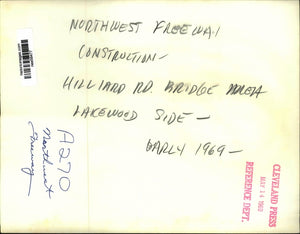 NORTHWEST FREEWAY
CONSTRUCTION—
HILLIARD RD. BRIDGE AREA
LAKEWOOD SIDE—
EARLY 1969—
A270
Northwest
Freeway
CLEVELAND PRESS
MAY 14 1969
REFERENCE DEPT.